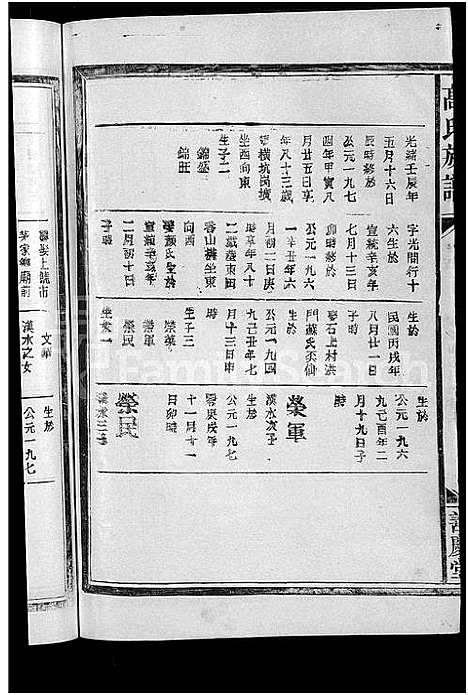 高氏族譜
善慶堂
光緒壬辰年
五月十六日
辰時終於
公元一九七
四年甲寅八
月廿五日享
年八十三歲
葬橫坑崗壙
坐酉向東
生子二
錦盛
錦旺
字光開行十
六生於
宣統辛亥年
七月十三日
終於公元一九六
一辛丑年六
月初二日庚
二歲葬東田
香山橫坐東
向西
娶顏氏生於
宣統辛亥年
二月初十日
子時
生於
民國丙戌年
八月廿一日
子時
娶石上村洪
門蘇氏丕仙
生於
公元一九四
九己丑年七
月十三日申
時
生子三
榮華
榮軍
榮民
生女一
生於
公元一九六
九己酉年二
月十九日子
時
榮軍
漢水次子
生於
公元一九七
零庚戌年
十一月十一
日卯時
榮民
漢水三子
文華
漢水之女
生於
公元一九七